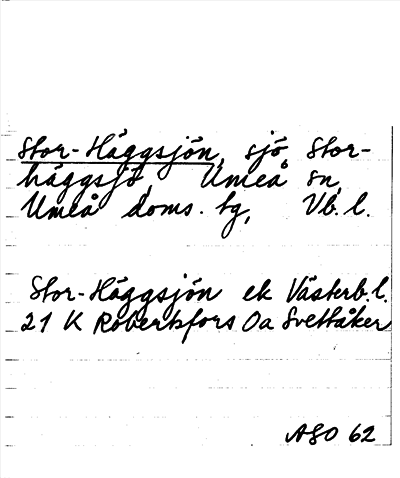 Stor-Häggsjön, sjö, Stor-
häggsjö, Umeå sn,
Umeå doms. tg, Vb. l.
Stor-Häggsjön ek Västerb.l.
21 K Robertsfors Oa Svettåker
ASO 62